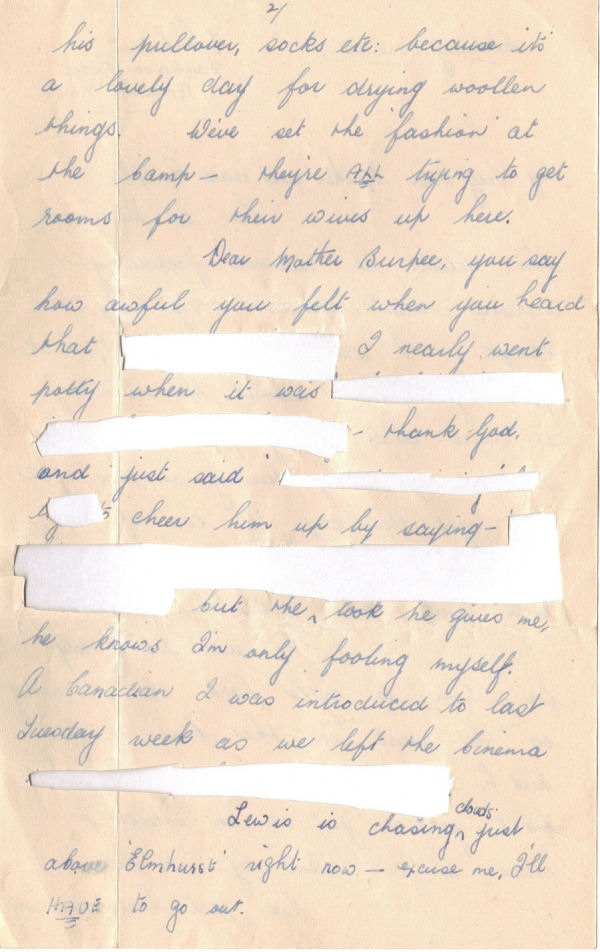 2/
his pullover, socks etc: because it's
a lovely day for drying woollen
things. We've set the 'fashion' at
the Camp — they're ALL trying to get
rooms for their wives up here.
Dear Mother Burpee, you say
how awful you felt when you heard
that I nearly went
potty when it was
- thank God,
and just said '
cheer him up by saying -
but the ‸ look he gives me,
he knows I'm only fooling myself.
A Canadian I was introduced to last
Tuesday week as we left the Cinema
clouds
Lewis is chasing ‸ just
above 'Elmhurst' right now — excuse me, I'll
HAVE to go out.